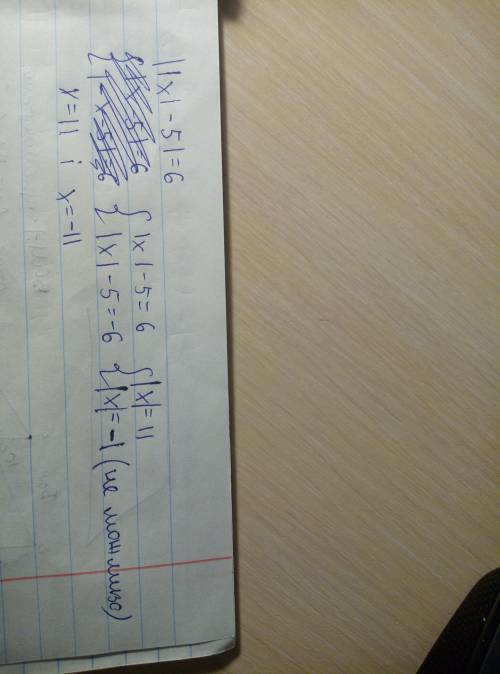 ||x|-5|=6
{|x|-5=6 {|x|=11
{|x|-5=-6 {|x|=-1 (не можливо)
x=11 i x=-11